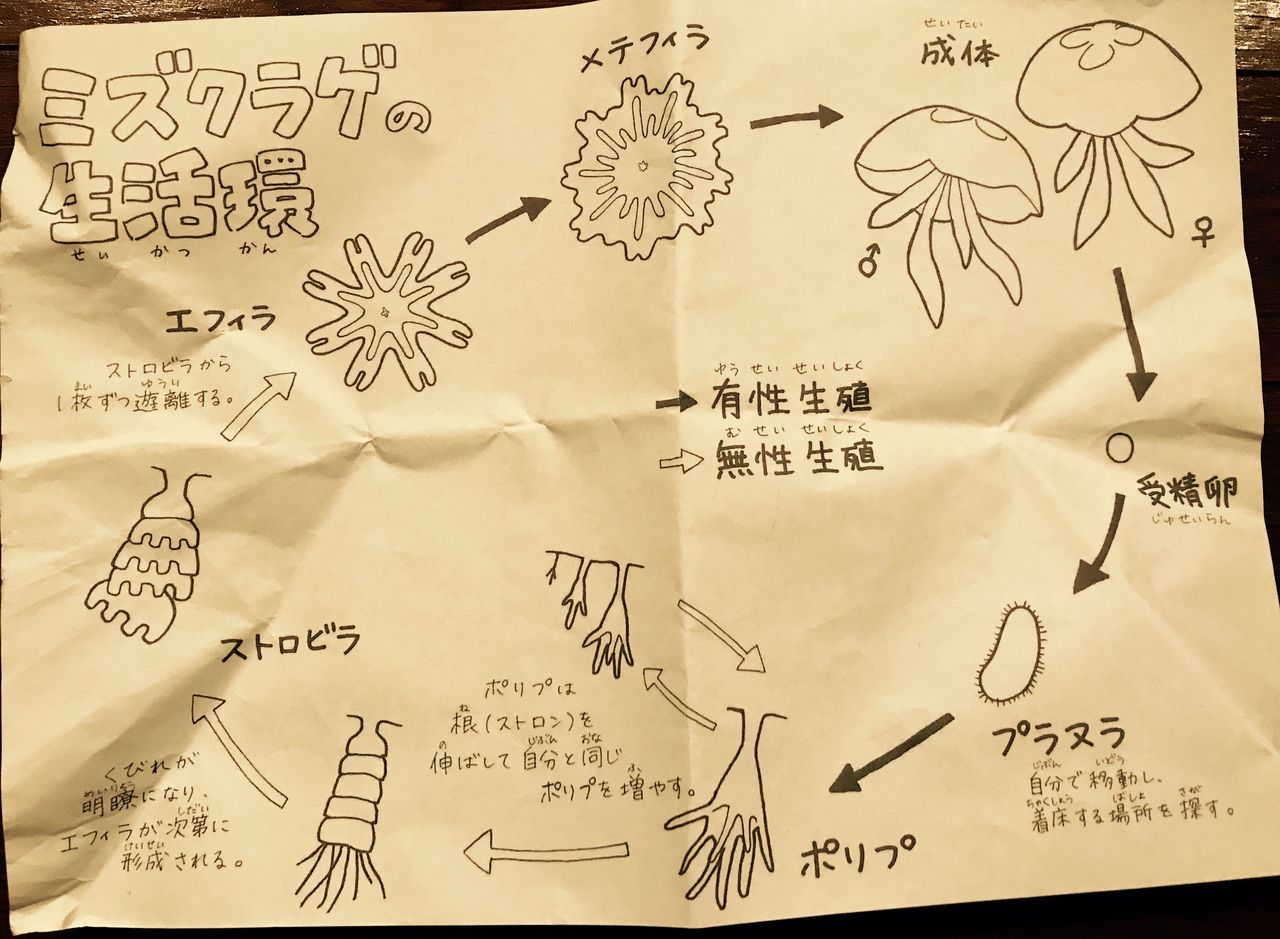 ミズクラゲの
生活環
せいかつかん
メテフィラ
せいたい
成体
♂
♀
エフィラ
ストロビラから
まい ゆうり
1枚ずつ遊離する。
ゆうせいせいしょく
有性生殖
むせいせいしょく
無性生殖
受精卵
じゅせいらん
プラヌラ
じぶん いどう
自分で移動し、
ちゃくしょう ばしょ さが
着床する場所を探す。
ポリプ
ポリプは
ね
根(ストロン)を
の じぶん おな
伸ばして自分と同じ
ふ
ポリプを増やす。
ストロビラ
くびれが
めいりょう
明瞭になり、
しだい
エフィラが次第に
けいせい
形成される。